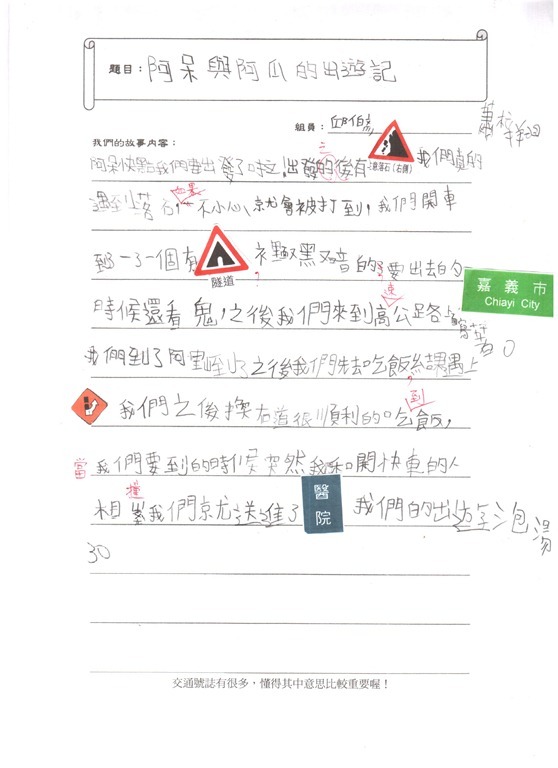 題目：阿呆與阿瓜的出遊記
組員：
我們的故事內容：
阿呆快點我們要出發了時之，出發的後有 落石（右側） 我們真的
遇到落石，不小心就會被打到，我們開車
到了一個有 隧道 又黑又暗的要出去的
時候還看鬼，之後我們來到高公路各上 嘉義市 Chiayi City
我們到了阿里山了之後我們先去吃飯結果遇上
我們之後換右道很順利的吃飯，到
當我們要到的時候突然我和開快車的人
相撞我們就送進了 醫院 我們的出遊泡湯
30
交通號誌有很多，懂得其中意思比較重要喔！